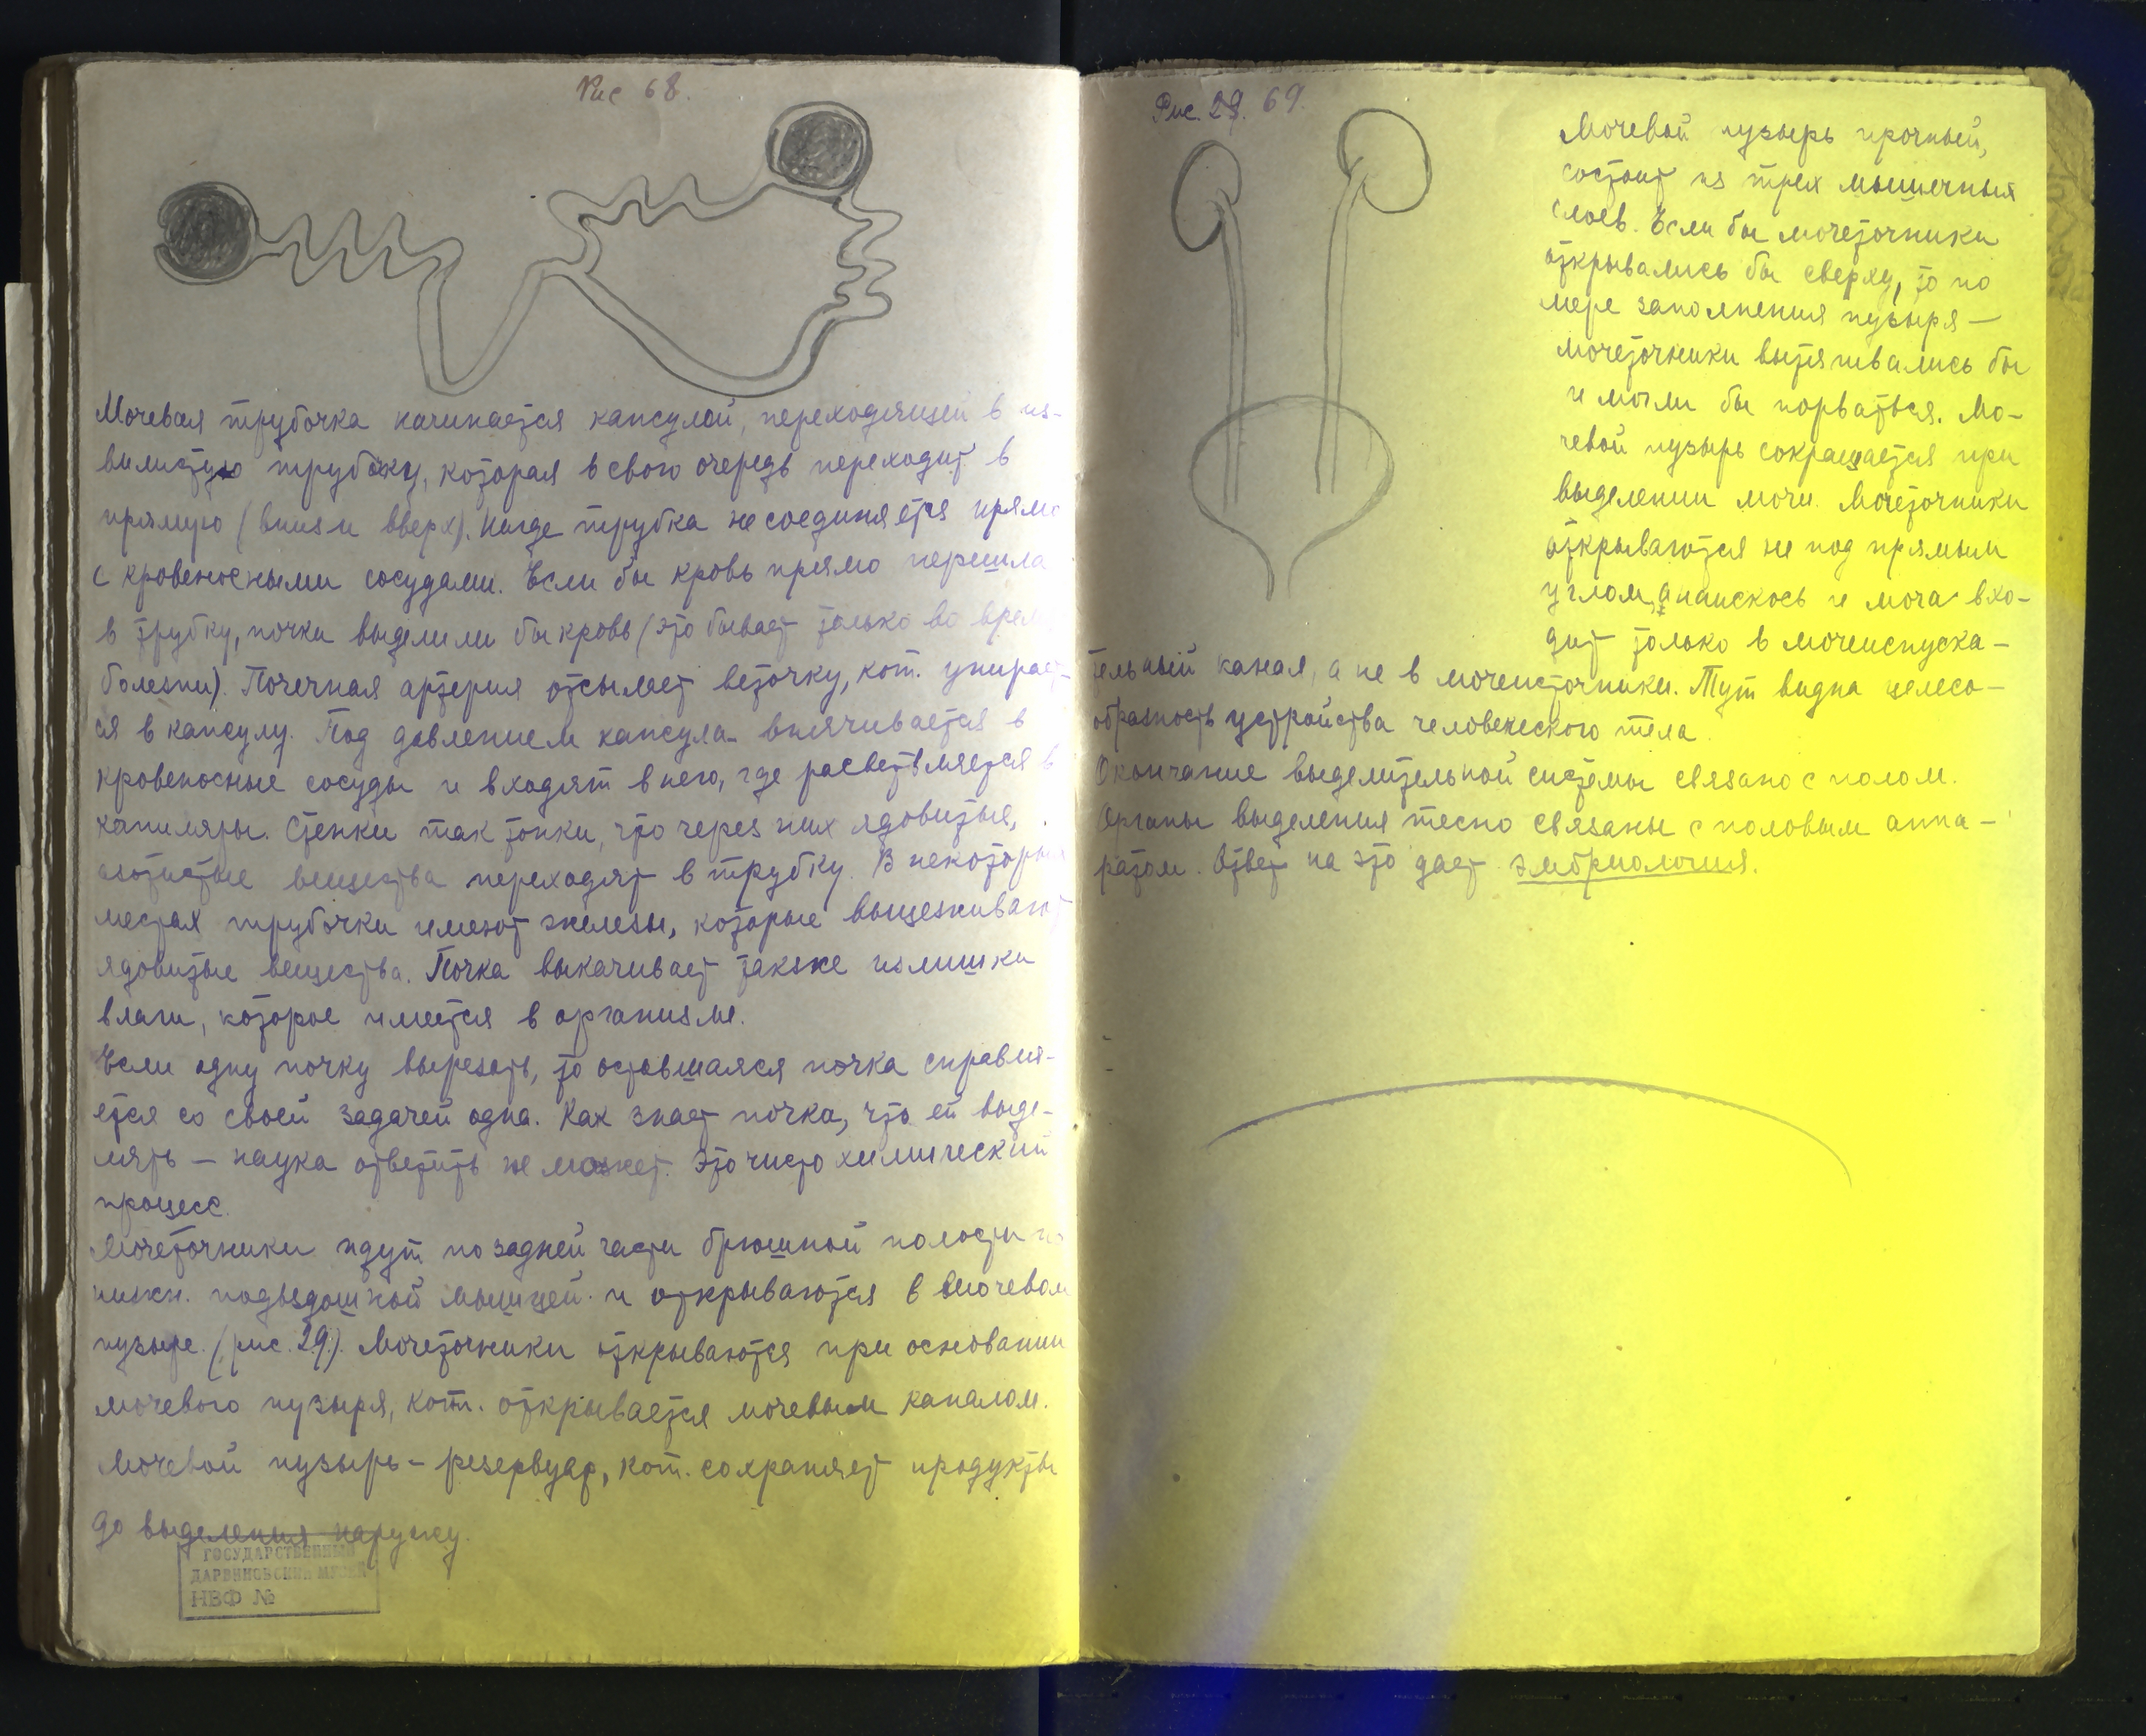 Рис 68.
Мочевая трубочка начинается капсулой, переходящей в из-
вилистую трубочку, которая в свою очередь переходит в
прямую (вниз и вверх). Нигде трубка не соединяется прямо
с кровеносными сосудами. Если бы кровь прямо перешла
в трубку, почки выделили бы кровь (это бывает только во врем
болезни). Почечная артерия отсылает веточку, кот. упирает-
ся в капсулу. Под давлением капсула впячивается в
кровеносные сосуды и входят в него, где разветвляется в
капиляры. Стенки так тонки, что через них ядовитые,
азотистые вещества переходят в трубку. В некоторых
местах трубочки имеют железы, которые выцеживают
ядовитые вещества. Почка выкачивает также излишки
влаги, которое имеется в организме.
Если одну почку вырезать, то оставшаяся почка справля-
ется со своей задачей одна. Как знает почка, что ей выде-
лять – наука ответить не может. Это чисто химический
процесс.
Мочеточники идут по задней части брюшной полости по
нижн. подвздошной мышцей и открываются в мочевом
пузыре. (рис. 29). Мочеточники открываются при основании
мочевого пузыря, кот. открывается мочевым каналом.
Мочевой пузырь – резервуар, кот. сохраняет продукты
до выделения наружу.
ГОСУДАРСТВЕННЫЙ
ДАРВИНОВСКИЙ МУЗЕЙ
НВФ №
Рис. 29. 69.
Мочевой пузырь прочный,
состоит из трех мышечных
слоев. Если бы мочеточники
открывались бы сверху, то по
мере заполнения пузыря —
мочеточники вытягивались бы
и могли бы порваться. Мо-
чевой пузырь сокращается при
выделении мочи. Мочеточники
открываются не под прямым
углом, а наискось и моча вхо-
дит только в мочеиспуска-
тельный канал, а не в мочеисточники. Тут видна целесо-
образность устройства человеческого тела.
Окончание выделительной системы связано с полом.
Органы выделения тесно связаны с половым аппа-
ратом. Ответ на это дает эмбриология.